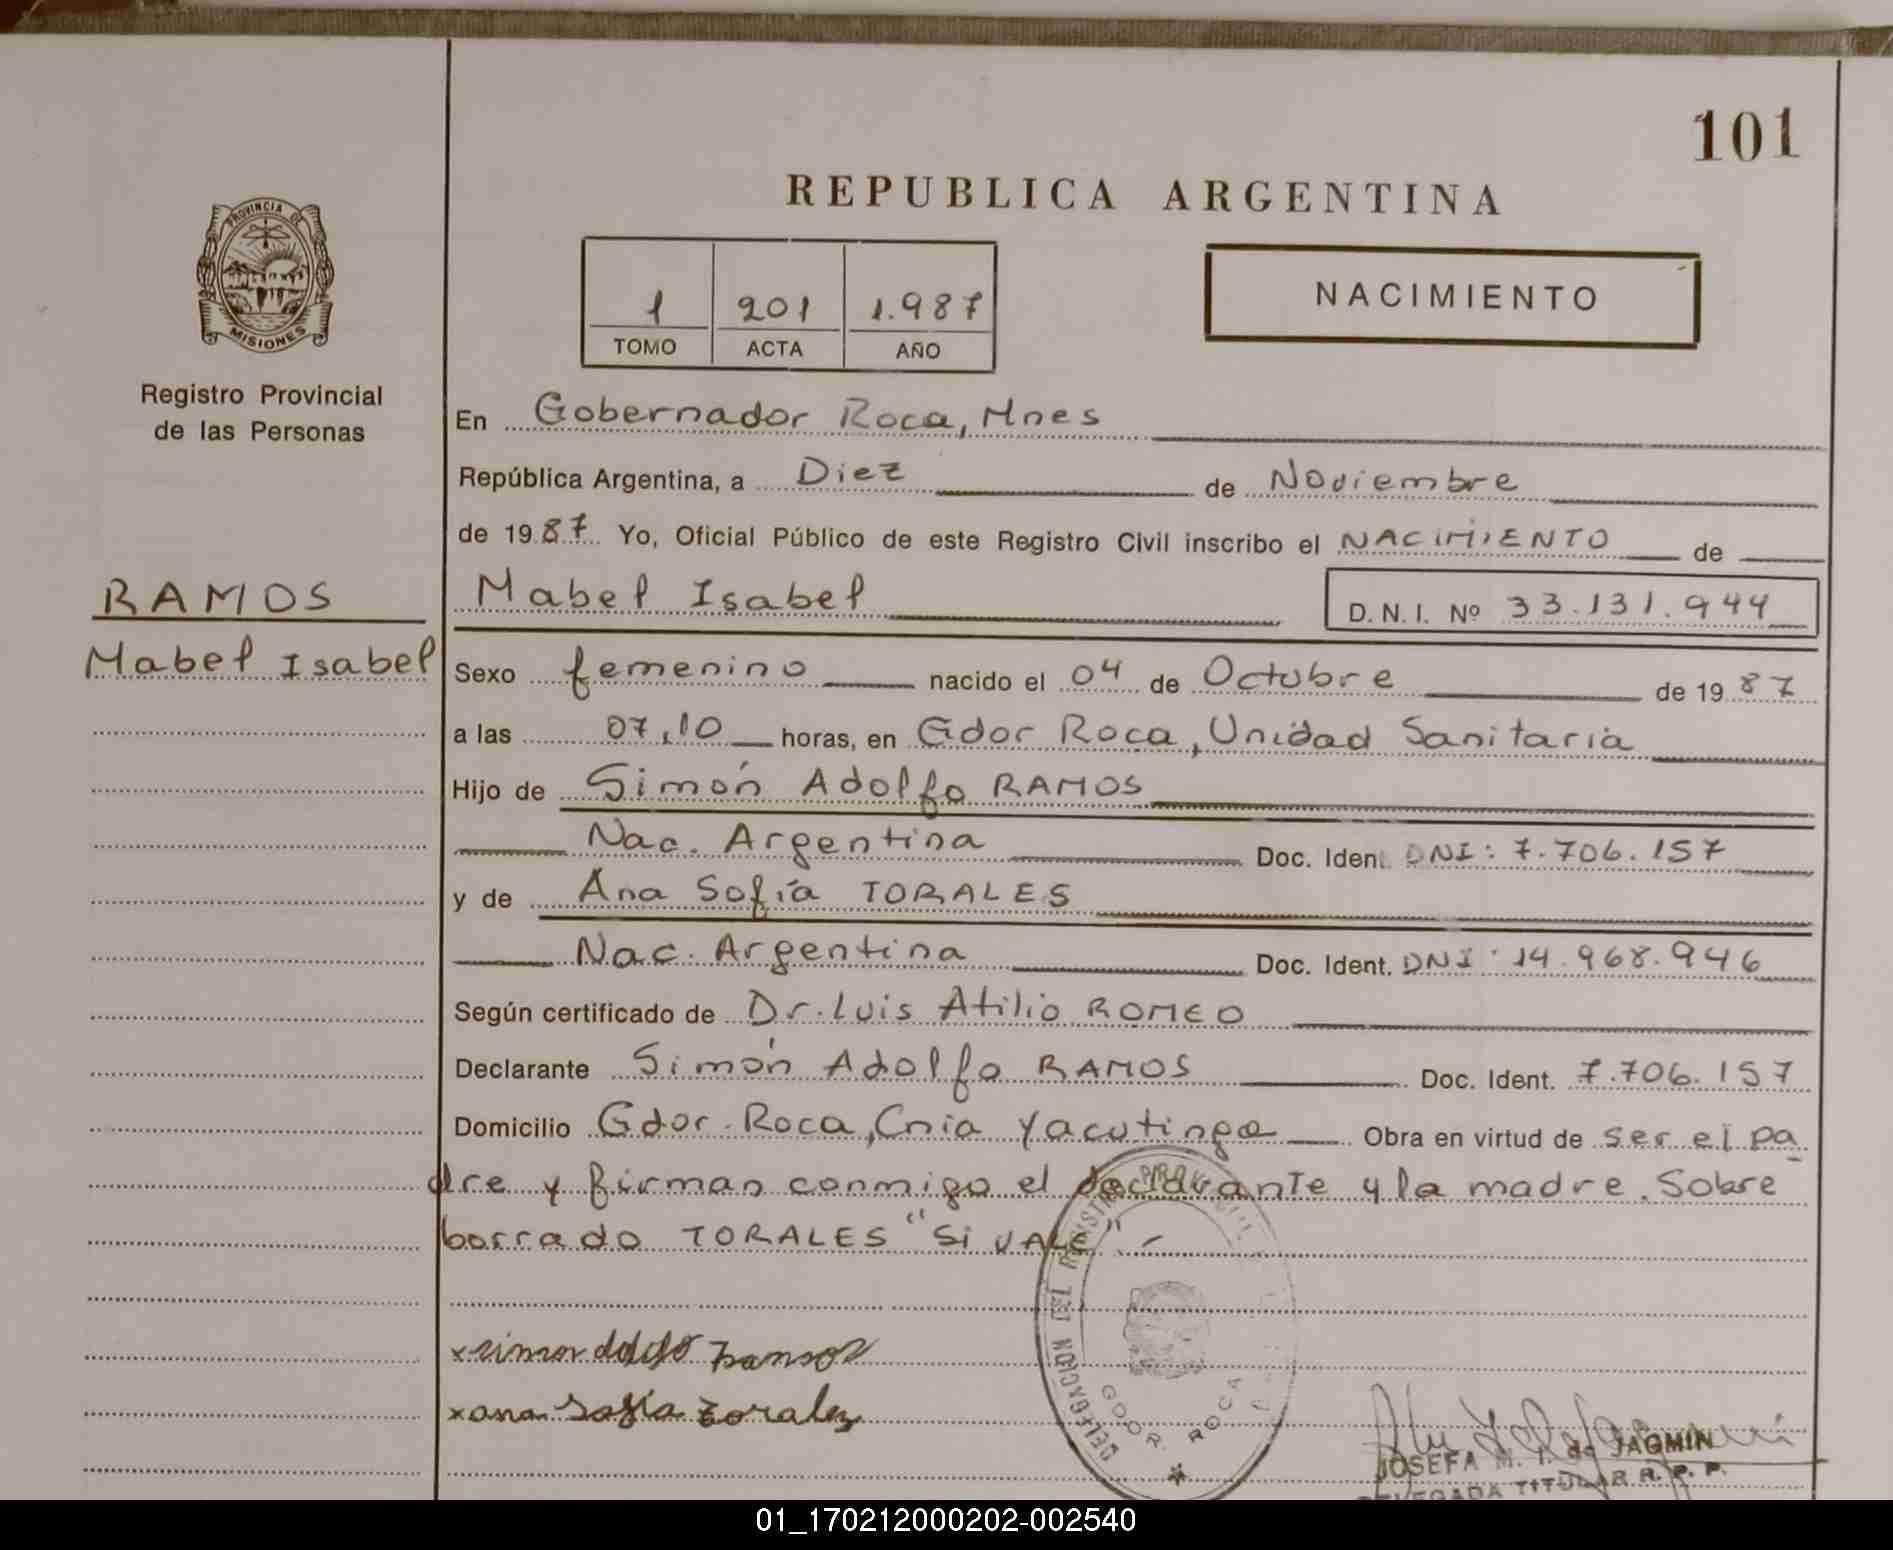 101
REPUBLICA ARGENTINA
PROVINCIA DE
MISIONES
Registro Provincial
de las Personas
1 201 1.987
TOMO ACTA AÑO
NACIMIENTO
En Gobernador Roca, Mnes
República Argentina, a Diez de Noviembre
de 1987 Yo, Oficial Público de este Registro Civil inscribo el NACIMIENTO de
RAMOS
Mabel Isabel
Mabel Isabel D.N.I. Nº 33.131.944
Sexo femenino nacido el 04 de Octubre de 1987
a las 07,10 horas, en Gdor Roca, Unidad Sanitaria
Hijo de Simón Adolfo RAMOS
Nac. Argentina Doc. Ident. DNI: 7.706.157
y de Ana Sofía TORALES
Nac. Argentina Doc. Ident. DNI: 14.968.946
Según certificado de Dr. Luis Atilio ROMEO
Declarante Simón Adolfo RAMOS Doc. Ident. 7.706.157
Domicilio Gdor. Roca, Cnia Yacutinga Obra en virtud de ser el pa
dre y firman conmigo el declarante y la madre. Sobre
borrado TORALES "Si VALE" -
DELEGACION DEL REGISTRO PROVINCIAL
GDOR. ROCA
x simon adolfo Ramos
x ana sofia torales
JOSEFA M. T. de JAGMIN
DELEGADA TITULAR R. P. P.
01_170212000202-002540